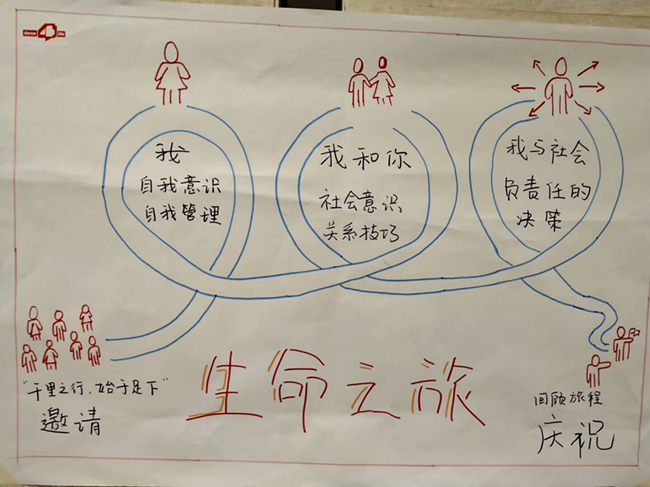 我
自我意识
自我管理
我和你
社会意识
关系技巧
我与社会
负责任的
决策
"千里之行，始于足下"
邀请
生命之旅
回顾旅程
庆祝